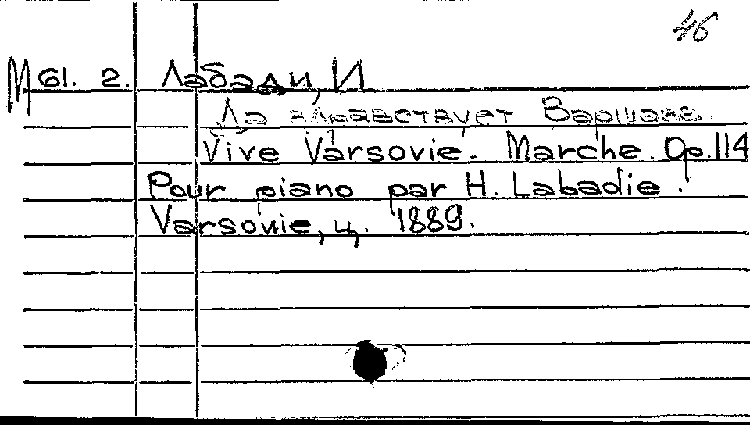 46
М 61. 2. Лабади, И
Да здравствует Варшава.
Vive Varsovie. Marche. Op. 114
Pour piano par H. Labadie.
Varsovie, ц. 1889.